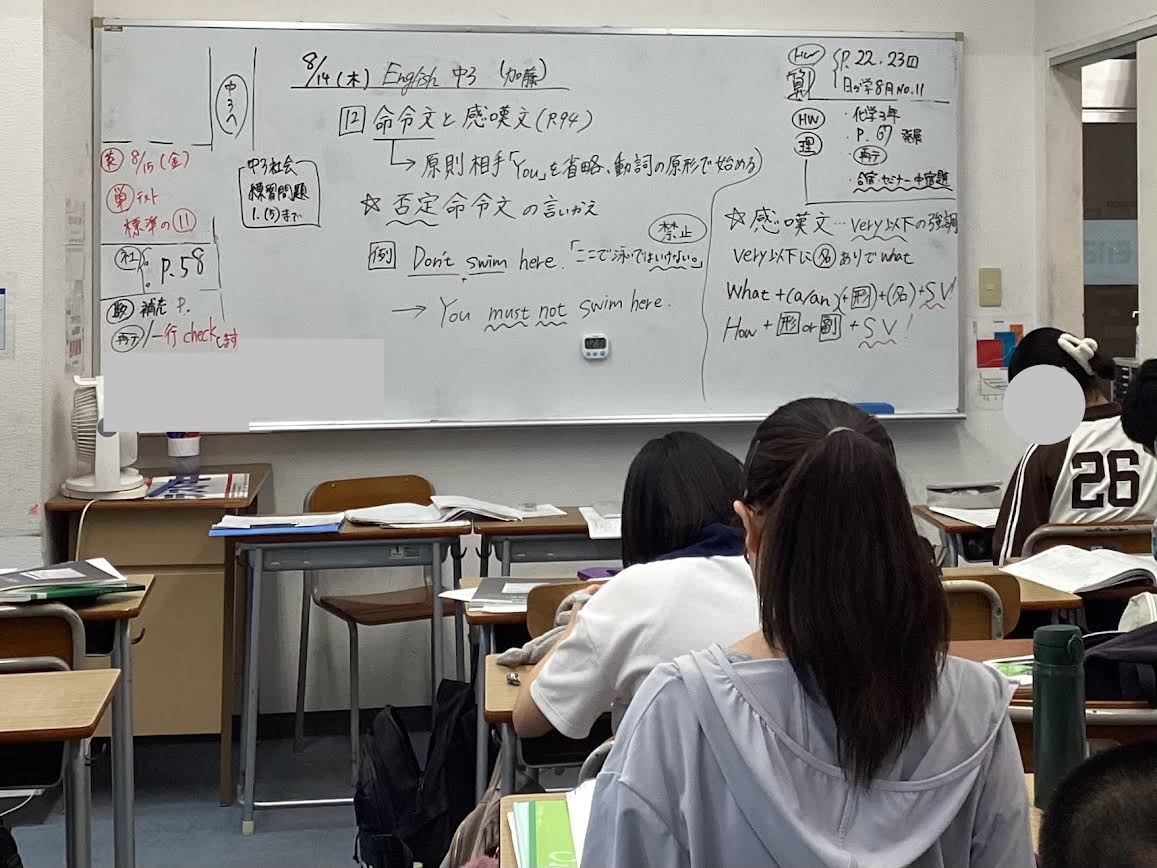 中3へ
8/14(木) English 中3 (加藤)
12 命令文と感嘆文(P.94)
→原則相手「You」を省略、動詞の原形で始める
☆否定命令文の言いかえ
禁止
例 Don't swim here.「ここで泳いではいけない。」
→ You must not swim here.
☆感嘆文…very以下の強調
very以下に名ありでwhat
What+(a/an)+形+(名)+SV!
How+形or副+SV!
HW 算 P.22.23回
日々学8月No.11
HW 理
・化学3年
・P.67 発展
・合宿・ゼミナー中宿題
英 8/15(金)
単テスト
標準の⑪
社: P.58
数 補充 P.
一行checkします
中3社会
練習問題
1.(5)まで
26